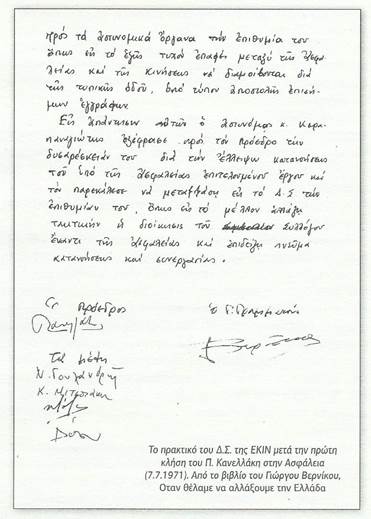 πρός τά ἀστυνομικά ὄργανα τήν ἐπιθυμία του
ὅπως εἰς τό ἑξῆς τυχόν ἐπαφαί μεταξύ τῆς Ἀσφα-
λείας καί τῆς Κινήσεως νά διαμείβωνται διά
τῆς τυπικῆς ὁδοῦ, ὑπό τύπον ἀποστολῆς ἐπισή-
μων ἐγγράφων.
Εἰς ἀπάντησιν αὐτῶν ὁ ἀστυνόμος κ. Καρα-
παναγιώτης ἐξέφρασε πρός τόν Πρόεδρο τήν
δυσαρέσκειάν του διά τήν ἔλλειψιν κατανοήσεως
τοῦ ὑπό τῆς Ἀσφαλείας ἐπιτελουμένου ἔργου καί
τόν παρεκάλεσε νά μεταβιβάση εἰς τό Δ.Σ τήν
ἐπιθυμίαν του, ὅπως εἰς τό μέλλον ἀλλάξη
τακτικήν ἡ διοίκησις τοῦ Συλλόγου
ἔναντι τῆς Ἀσφαλείας καί ἐπιδείξη πνεῦμα
κατανοήσεως καί συνεργασίας.
Ὁ Πρόεδρος
Ὁ Γ. Γραμματεύς
Τά μέλη
Ν. Γουλανδρή
Το πρακτικό του Δ.Σ. της ΕΚΙΝ μετά την πρώτη
κλήση του Π. Κανελλάκη στην Ασφάλεια
(7.7.1971). Από το βιβλίο του Γιώργου Βερνίκου,
Οταν θέλαμε να αλλάξουμε την Ελλάδα